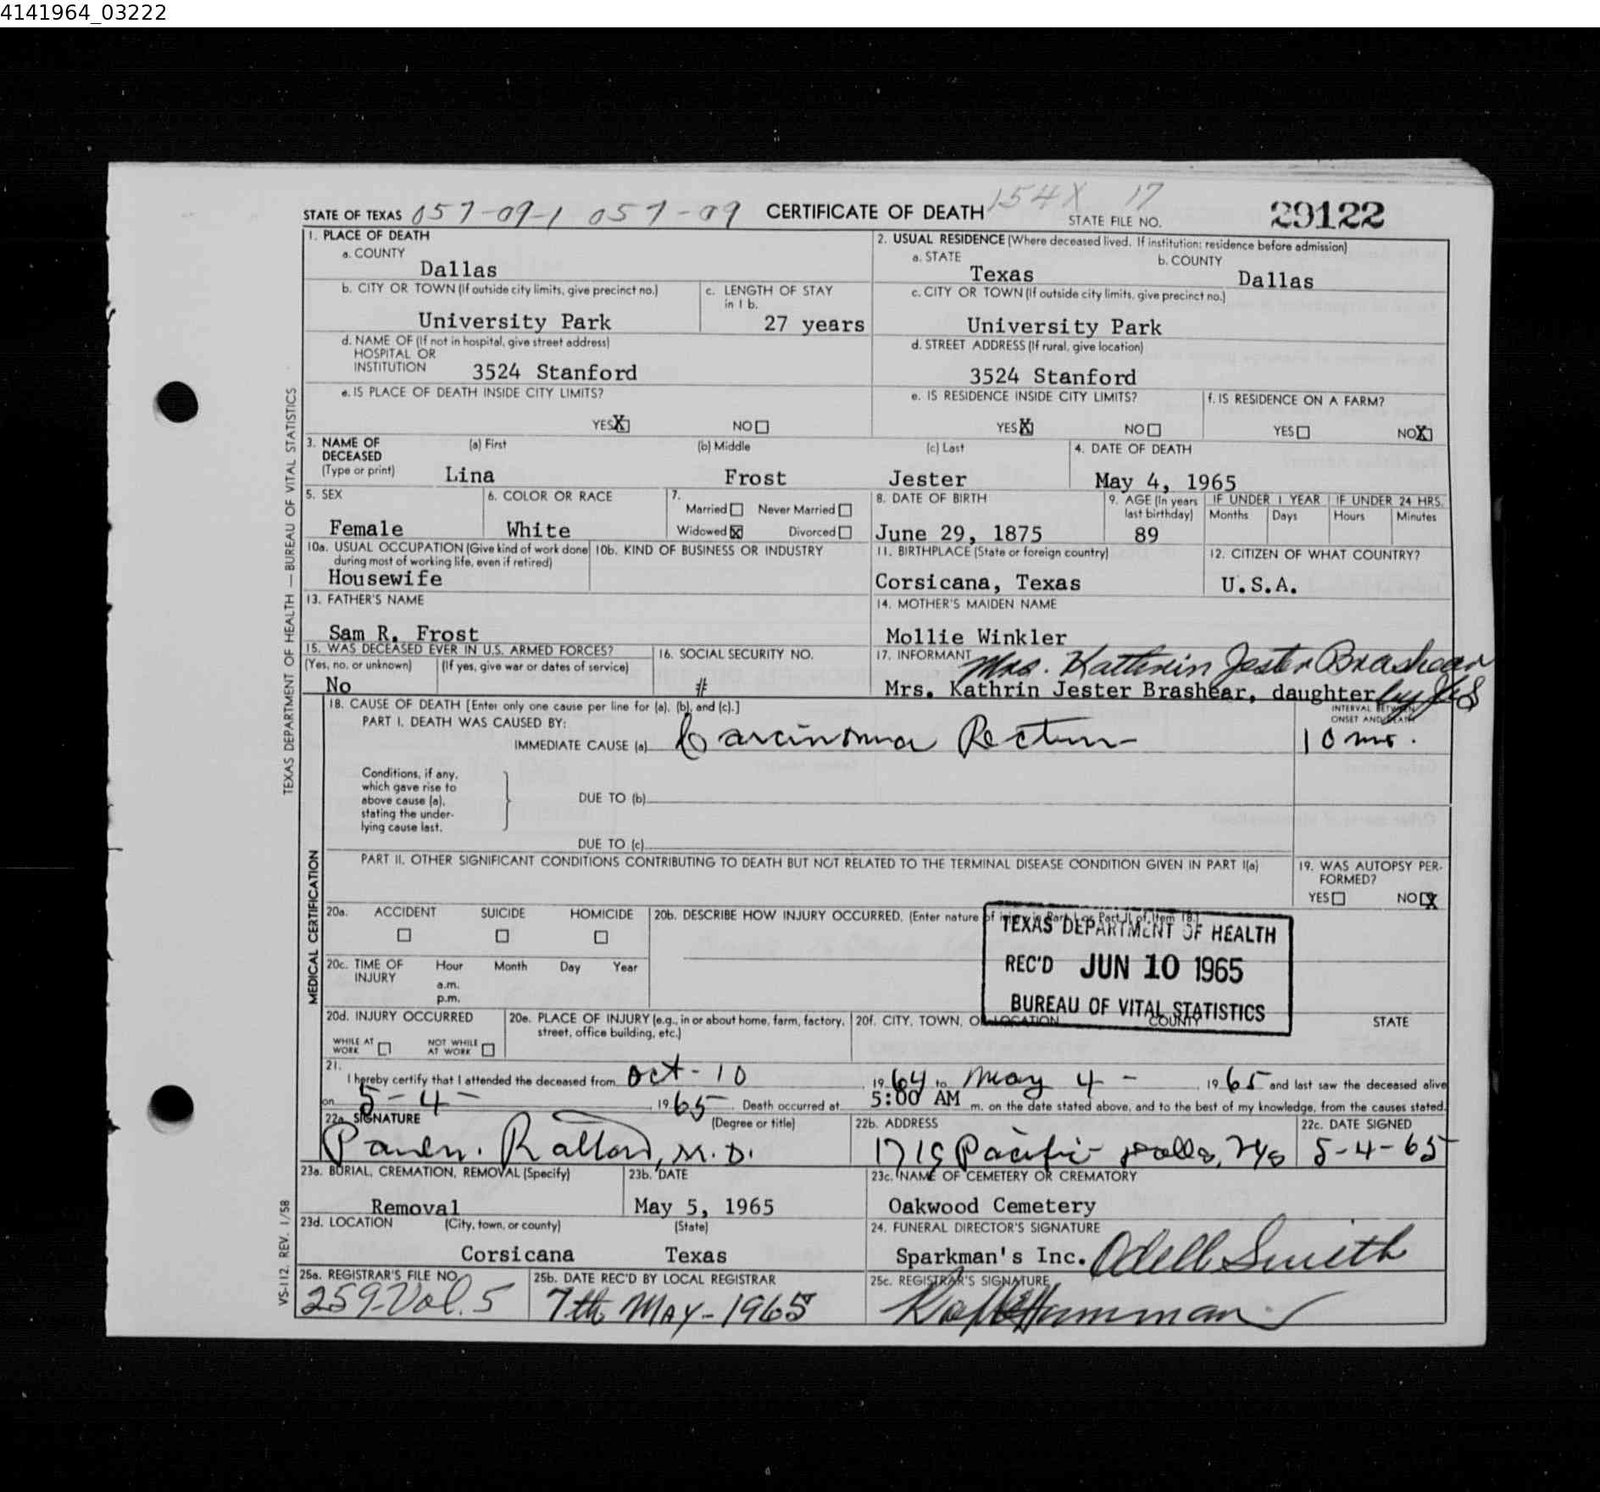 4141964_03222
STATE OF TEXAS 057-09-1 057-09 CERTIFICATE OF DEATH 154X 17 STATE FILE NO. 29122
1. PLACE OF DEATH
a. COUNTY
Dallas
2. USUAL RESIDENCE (Where deceased lived. If institution: residence before admission)
a. STATE
Texas
b. COUNTY
Dallas
b. CITY OR TOWN (If outside city limits, give precinct no.)
University Park
c. LENGTH OF STAY
in 1 b.
27 years
c. CITY OR TOWN (If outside city limits, give precinct no.)
University Park
d. NAME OF (If not in hospital, give street address)
HOSPITAL OR
INSTITUTION 3524 Stanford
d. STREET ADDRESS (If rural, give location)
3524 Stanford
e. IS PLACE OF DEATH INSIDE CITY LIMITS?
YES X NO
e. IS RESIDENCE INSIDE CITY LIMITS?
YES X NO
f. IS RESIDENCE ON A FARM?
YES NO X
3. NAME OF
DECEASED
(Type or print)
(a) First
Lina
(b) Middle
Frost
(c) Last
Jester
4. DATE OF DEATH
May 4, 1965
5. SEX
Female
6. COLOR OR RACE
White
7.
Married Never Married
Widowed X Divorced
8. DATE OF BIRTH
June 29, 1875
9. AGE (In years
last birthday)
89
IF UNDER 1 YEAR
Months Days
IF UNDER 24 HRS.
Hours Minutes
10a. USUAL OCCUPATION (Give kind of work done
during most of working life, even if retired)
Housewife
10b. KIND OF BUSINESS OR INDUSTRY
11. BIRTHPLACE (State or foreign country)
Corsicana, Texas
12. CITIZEN OF WHAT COUNTRY?
U.S.A.
13. FATHER'S NAME
Sam R. Frost
14. MOTHER'S MAIDEN NAME
Mollie Winkler
15. WAS DECEASED EVER IN U.S. ARMED FORCES?
(Yes, no, or unknown) (If yes, give war or dates of service)
No
16. SOCIAL SECURITY NO.
#
17. INFORMANT Mrs. Kathrin Jester Brashear
Mrs. Kathrin Jester Brashear, daughter by
18. CAUSE OF DEATH [Enter only one cause per line for (a), (b), and (c).]
PART I. DEATH WAS CAUSED BY:
IMMEDIATE CAUSE (a) Carcinoma Rectum
INTERVAL BETWEEN
ONSET AND DEATH
10 mo.
Conditions, if any,
which gave rise to
above cause (a),
stating the under-
lying cause last.
DUE TO (b)
DUE TO (c)
PART II. OTHER SIGNIFICANT CONDITIONS CONTRIBUTING TO DEATH BUT NOT RELATED TO THE TERMINAL DISEASE CONDITION GIVEN IN PART I(a)
19. WAS AUTOPSY PER-
FORMED?
YES NO X
20a. ACCIDENT SUICIDE HOMICIDE
20b. DESCRIBE HOW INJURY OCCURRED. (Enter nature of injury in Part I or Part II of Item 18.)
TEXAS DEPARTMENT OF HEALTH
REC'D JUN 10 1965
BUREAU OF VITAL STATISTICS
20c. TIME OF
INJURY
Hour Month Day Year
a.m.
p.m.
20d. INJURY OCCURRED
WHILE AT
WORK
NOT WHILE
AT WORK
20e. PLACE OF INJURY (e.g., in or about home, farm, factory,
street, office building, etc.)
20f. CITY, TOWN, OR LOCATION COUNTY STATE
21.
I hereby certify that I attended the deceased from Oct-10, 1964 to May 4-, 1965 and last saw the deceased alive
on 5-4-, 1965. Death occurred at 5:00 AM m. on the date stated above, and to the best of my knowledge, from the causes stated.
22a. SIGNATURE (Degree or title)
M.D.
22b. ADDRESS
1719 Pacific
22c. DATE SIGNED
5-4-65
23a. BURIAL, CREMATION, REMOVAL (Specify)
Removal
23b. DATE
May 5, 1965
23c. NAME OF CEMETERY OR CREMATORY
Oakwood Cemetery
23d. LOCATION (City, town, or county) (State)
Corsicana Texas
24. FUNERAL DIRECTOR'S SIGNATURE
Sparkman's Inc. Odell Smith
25a. REGISTRAR'S FILE NO.
259-Vol. 5
25b. DATE REC'D BY LOCAL REGISTRAR
7th MAY-1965
25c. REGISTRAR'S SIGNATURE
Hamman
TEXAS DEPARTMENT OF HEALTH — BUREAU OF VITAL STATISTICS
MEDICAL CERTIFICATION
VS-112. REV. 1/58